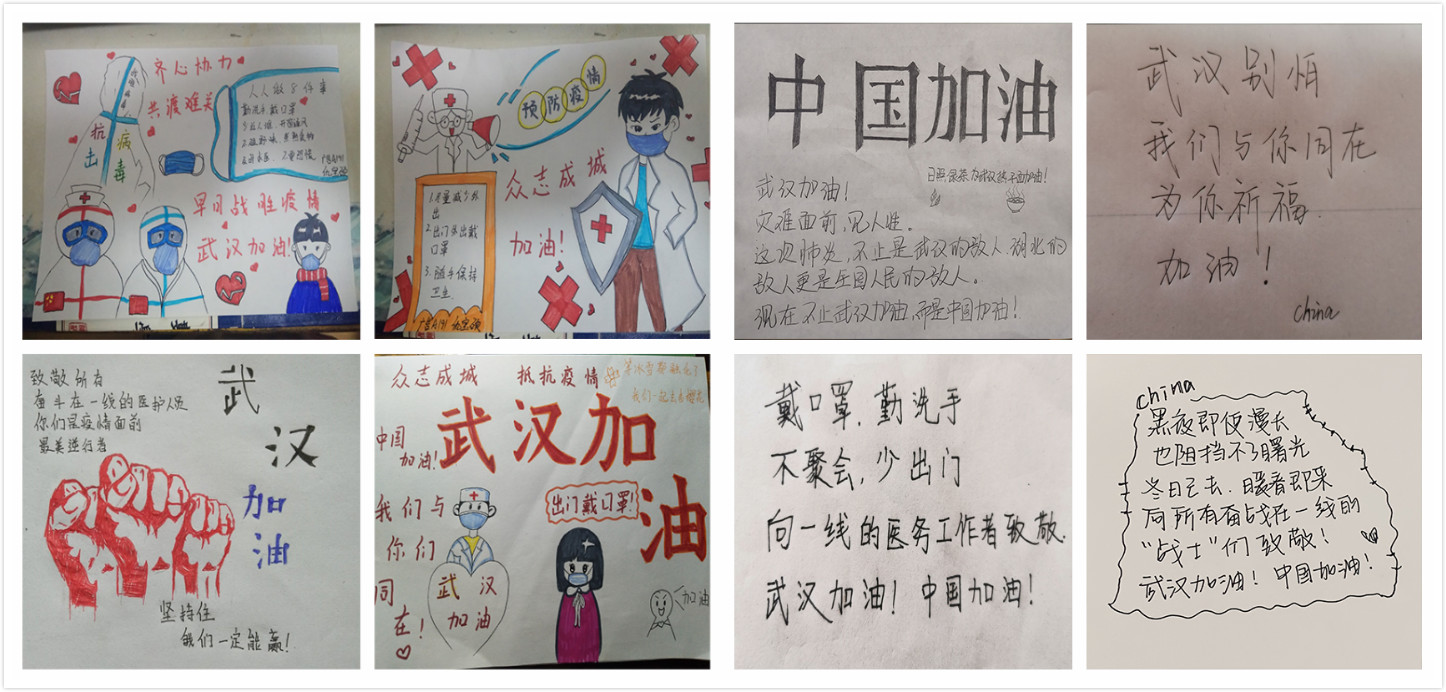 齐心协力
共渡难关
人人做8件事
勤洗手戴口罩
抗出
病毒
早日战胜疫情
武汉加油!
预防疫情
众志成城
加油!
1.尽量减少外
出
2.出门外出戴
口罩
3.随手保持
卫生
中国加油
武汉加油!
灾难面前,见人性。
这次肺炎,不止是武汉的敌人.湖北的
敌人更是全国人民的敌人。
现在不止武汉加油,而是中国加油!
武汉别怕
我们与你同在
为你祈福.
加油!
china
致敬所有
奋斗在一线的医护人员
你们是疫情面前
最美逆行者
武
汉
加
油
坚持住
我们一定能赢!
众志成城 抵抗疫情
我们一起去看樱花
武汉加
油
中国
加油!
我们与
你们
同
在!
出门戴口罩!
武汉
加油
加油
戴口罩,勤洗手
不聚会,少出门
向一线的医务工作者致敬.
武汉加油! 中国加油!
china
黑夜即便漫长
也阻挡不了曙光
冬日已去.暖春即来
向所有奋战在一线的
“战士”们致敬!
武汉加油! 中国加油!